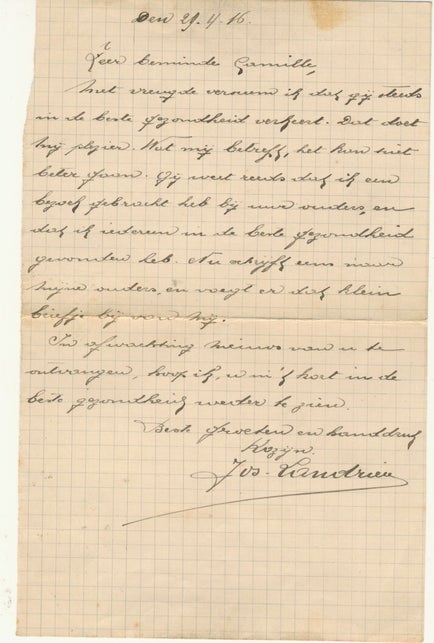 Den 29.4.16.
Zeer beminde Camille,
Met vreugde vernam ik dat gij steeds
in de beste gezondheid verkeert. Dat doet
mij plezier. Wat mij betreft, het kan niet
beter gaan. Gij weet reeds dat ik een
bezoek gebracht heb bij uwe ouders, en
dat ik iedereen in de beste gezondheid
gevonden heb. Nu schrijft eens naar
mijne ouders, en voegt er dat klein
briefje bij van mij.
In afwachting nieuws van u te
ontvangen, hoop ik, u in 't kort in de
beste gezondheid weder te zien.
Beste groeten en handdruk
Kozijn.
Jos. Landrieu